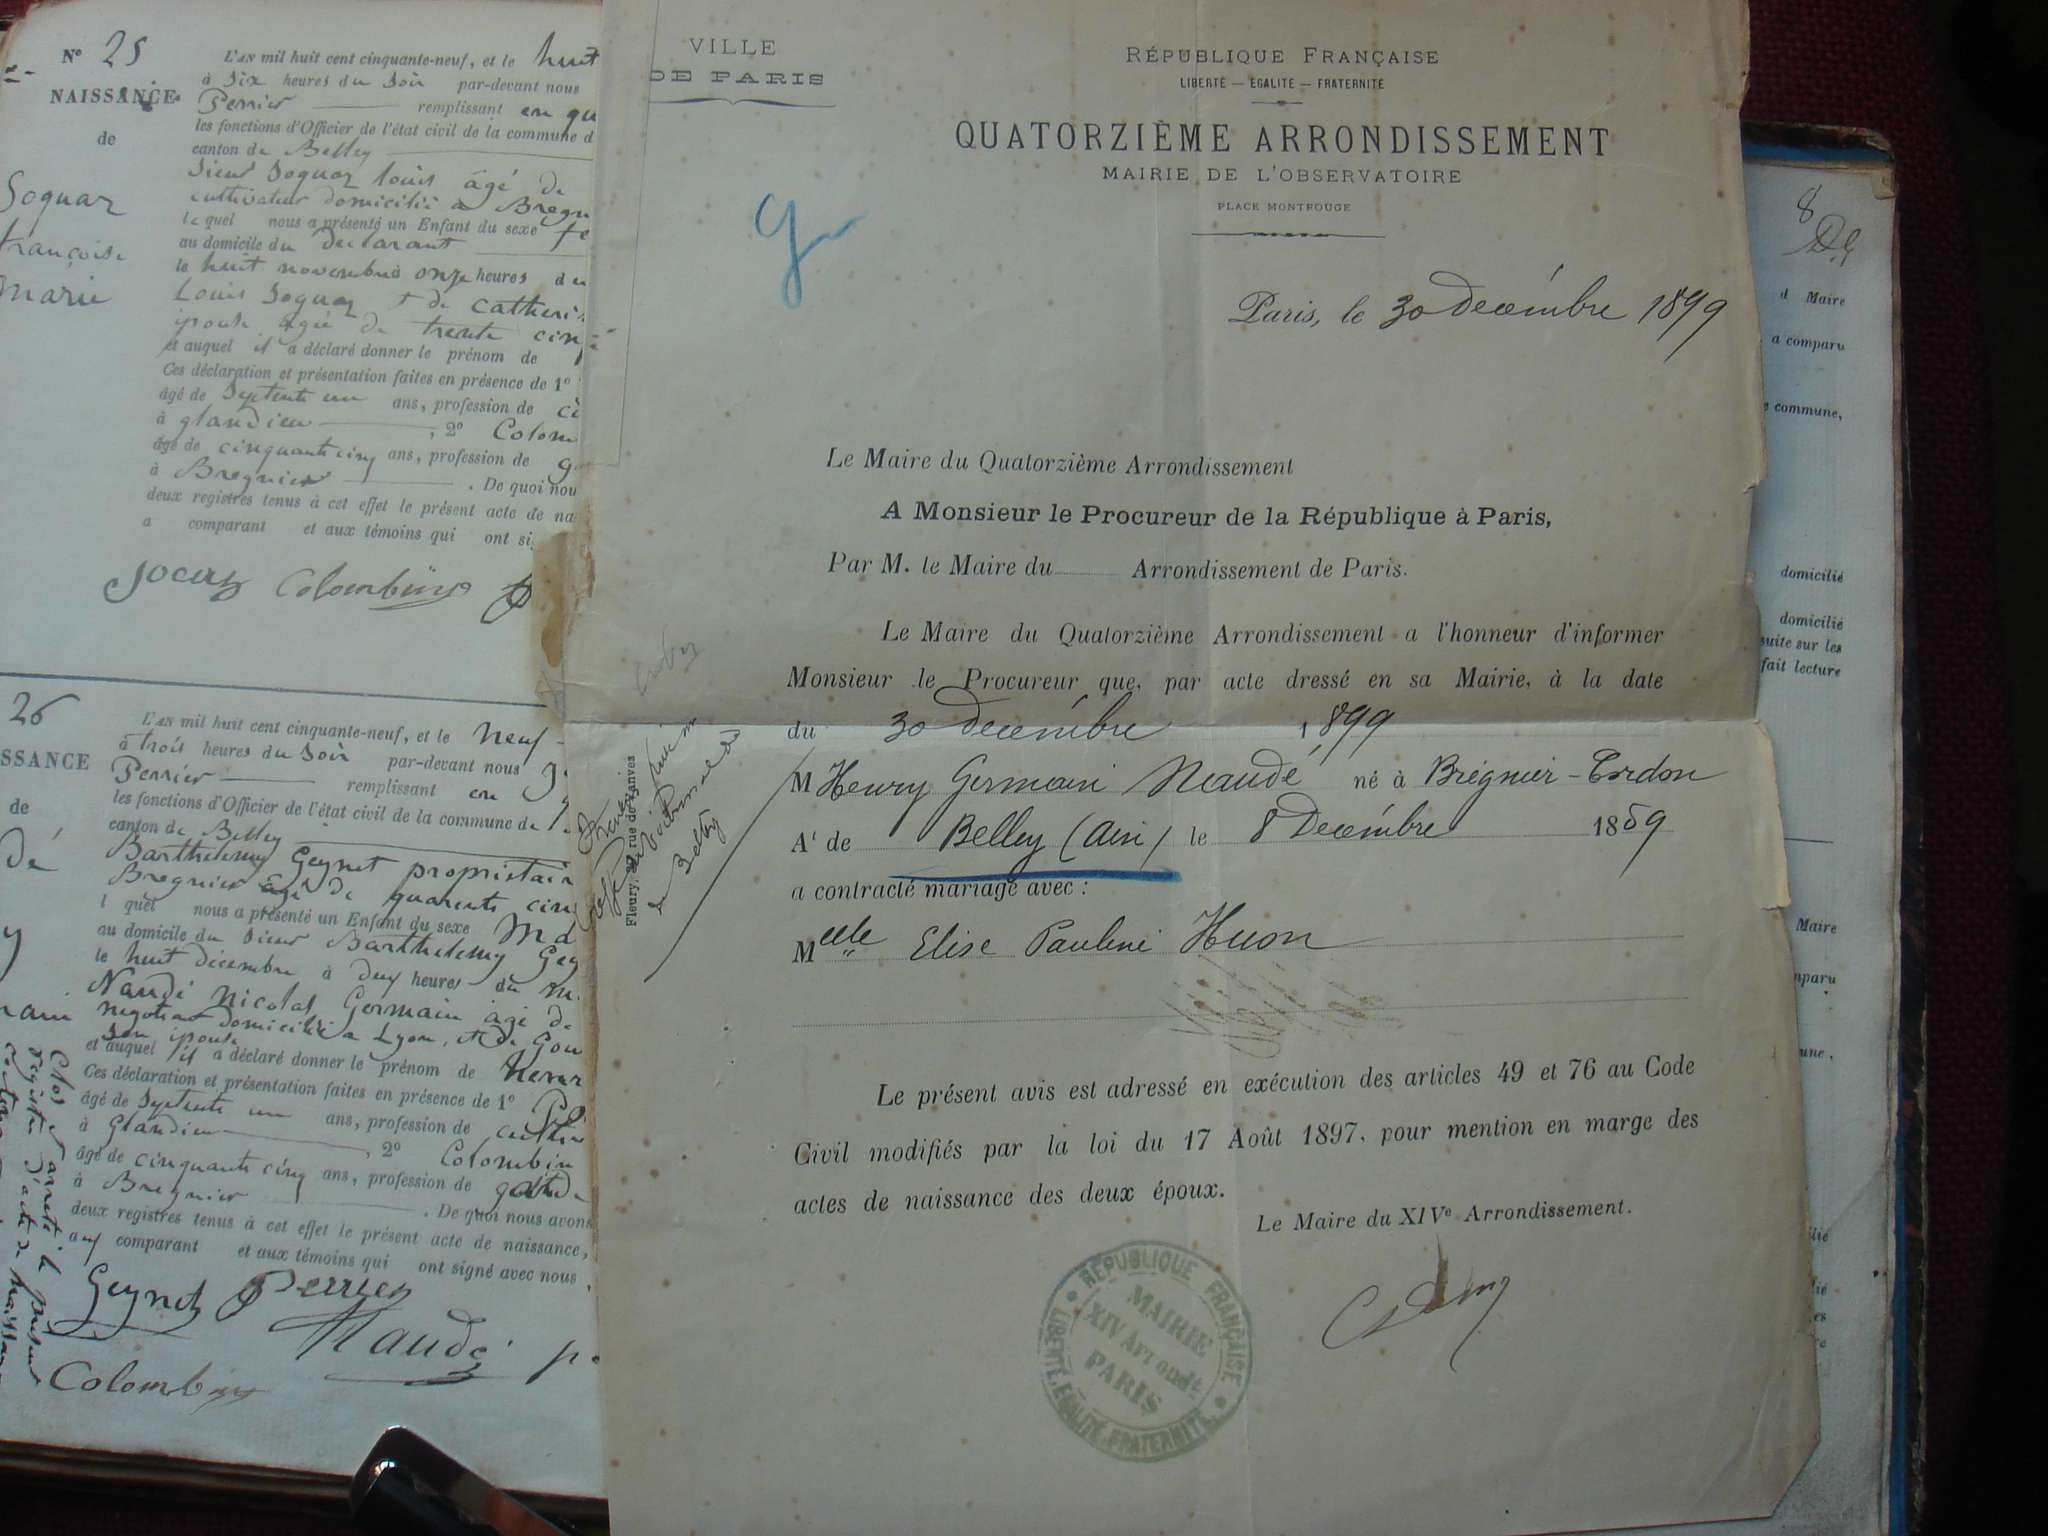 N° 25
NAISSANCE
de
Soquaz
françoise
marie
L'AN mil huit cent cinquante-neuf, et le huit
à Six heures du Soir par-devant nous
Perrier remplissant en qu
les fonctions d'Officier de l'état civil de la commune d
canton de Belley
Sieur Soquaz Louis âgé de
cultivateur domicilié à Bregn
le quel nous a présenté un Enfant du sexe fe
au domicile du declarant
le huit novembre onze heures du
Louis Soquaz & de Catheri
épouse agée de trente cinq
et auquel il a déclaré donner le prénom de
Ces déclaration et présentation faites en présence de 1°
âgé de Septente un ans, profession de c
à glandieu , 2° Colom
âgé de cinquante cinq ans, profession de g
à Bregnier . De quoi nou
deux registres tenus à cet effet le présent acte de na
a comparant et aux témoins qui ont si
Colombin
26
SSANCE
de
dé
L'AN mil huit cent cinquante-neuf, et le neuf
à trois heures du Soir par-devant nous
Perrier remplissant en
les fonctions d'Officier de l'état civil de la commune de
canton de Belley
Barthelemy Geynet propriétair
Bregnier agé de quarente cinq
l quel nous a présenté un Enfant du sexe Ma
au domicile du Sieur Barthelemy Gey
le huit décembre à deux heures du
Naudé Nicolas Germain âgé de
negotiant domicilié a Lyon, et de Gou
son épouse
et auquel il a déclaré donner le prénom de henr
Ces déclaration et présentation faites en présence de 1°
âgé de Septente un ans, profession de cultiv
à Glandieu , 2° Colombin
âgé de cinquante cinq ans, profession de garde
à Bregnier . De quoi nous avons
deux registres tenus à cet effet le présent acte de naissance,
aux comparant et aux témoins qui ont signé avec nous
Geynet Perrier
Naudé
Colombin
Clos et arrêté le présent
registre d'acte de naissan
VILLE
DE PARIS
RÉPUBLIQUE FRANÇAISE
LIBERTÉ — EGALITÉ — FRATERNITÉ
QUATORZIÈME ARRONDISSEMENT
MAIRIE DE L'OBSERVATOIRE
PLACE MONTROUGE
Paris, le 30 Decémbre 1899
Le Maire du Quatorzième Arrondissement
A Monsieur le Procureur de la République à Paris,
Par M. le Maire du Arrondissement de Paris.
Le Maire du Quatorzième Arrondissement a l'honneur d'informer
Monsieur le Procureur que, par acte dressé en sa Mairie, à la date
du 30 Decémbre 1899
M Henry Germain Naudé né à Brégnier-Cordon
At de Belley (Ain) le 8 Decémbre 1859
a contracté mariage avec :
Melle Elise Pauline Huon
Le présent avis est adressé en exécution des articles 49 et 76 au Code
Civil modifiés par la loi du 17 Août 1897, pour mention en marge des
actes de naissance des deux époux.
Le Maire du XIVe Arrondissement.
RÉPUBLIQUE FRANÇAISE
LIBERTÉ, EGALITÉ, FRATERNITÉ
MAIRIE
XIV Arrondt
PARIS
Fleury, rue de Vanves
Belley
8
d Maire
a comparu
e commune,
domicilié
domicilié
suite sur les
fait lecture
Maire
mparu
une,